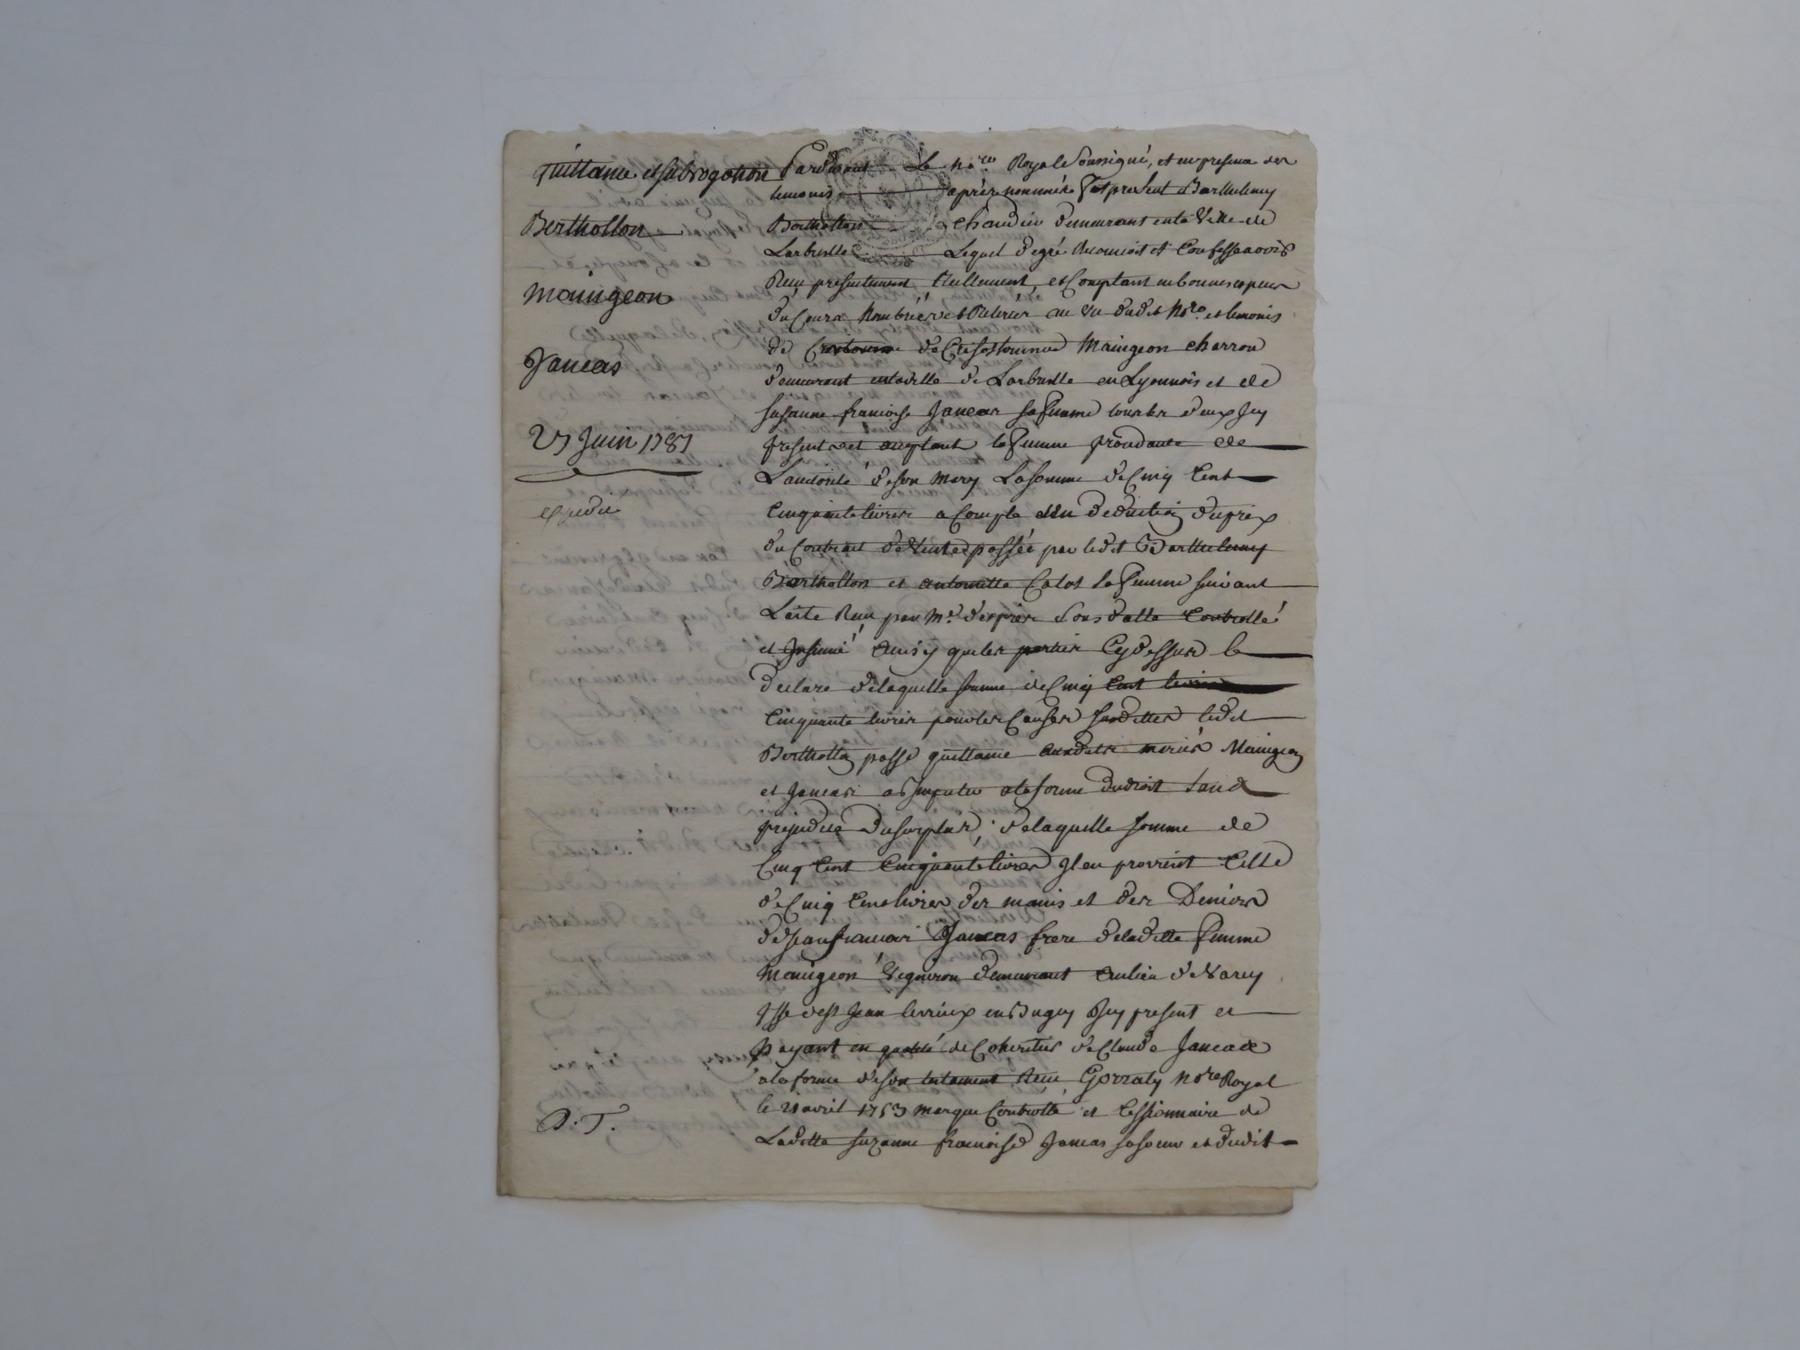 Quittance et subrogation
Berthollon
Maingeon
Janeas
27 Juin 1787
expedié
D. T.
Pardevant Le No.re Royal Soussigné, et en presence des
temoins après nommés Fut present Barthelemy
Berthollon demeurant en la Ville de
Lequel de gré Reconnoit et Confesse avoir
Reçu presentement Réellement, et Comptant en bonnes especes
du Cours Nombrées et Retirées au Vu dudit No.re et temoins
de Maingeon charron
demeurant en laditte de en Lyonnois et de
Susanne francoise Janeas sa Femme tous les deux Icy
presents et acceptant la Femme procedante de
L'autorité de son Mary La somme de Cinq Cent
Cinquante livres a Compte et en deduction du prix
du Contract de Vente passée par ledit Barthelemy
Berthollon et antoinette Calot sa Femme suivant
L'acte Reçu par Me. sous datte Controllé
et Insinué ainsy que les parties Cy dessus le
declare de laquelle somme de Cinq Cent livres
Cinquante livres pour les Causes susdittes ledit
Berthollon passe quittance auxdits mariés Maingeon
et Janeas a Imputer a la forme du droit sans
prejudice du surplus, de laquelle somme de
Cinq Cent Cinquante livres Il en provient Celle
de Cinq Cent livres des mains et des Deniers
de Jean francois Janeas frere de laditte Femme
Maingeon Vigneron demeurant au lieu de Varey
psse de St Jean le vieux en Bugey Icy present et
payant en qualité de Coheritier de Claude Janeas
a la forme de son testament Reçu No.re Royal
le 21 avril 1753 marque Controllé et Cessionnaire de
Laditte Suzanne francoise Janeas sa soeur et dudit